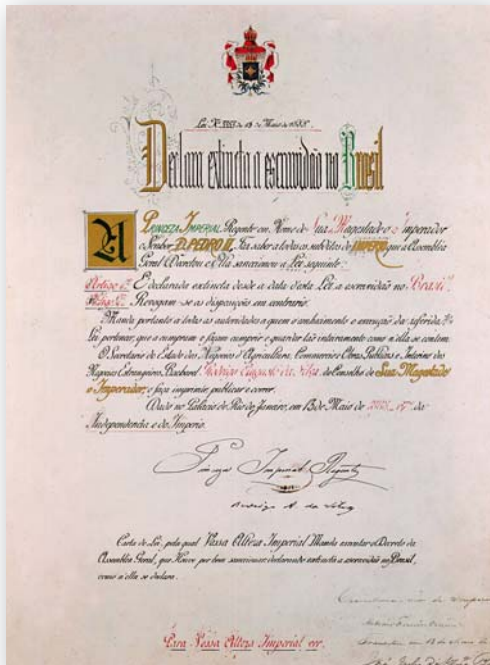 Lei Nº 3353 de 13 de Maio de 1888.
Declara extincta a escravidão no Brasil
A Princeza Imperial, Regente em Nome de Sua Magestade o Imperador
o Senhor D. PEDRO II, Faz saber a todos os subditos do IMPERIO que a Assembléa
Geral Decretou e Ella sanccionou a Lei seguinte:
Artigo 1º É declarada extincta desde a data d'esta Lei a escravidão no Brasil.
Artigo 2º Revogam-se as disposições em contrario.
Manda portanto a todas as autoridades a quem o conhecimento e execução da referida
Lei pertencer, que a cumpram e façam cumprir e guardar tão inteiramente como n'ella se contem.
O Secretario de Estado dos Negocios d'Agricultura, Commercio e Obras Publicas e Interino dos
Negocios Estrangeiros, Bacharel Rodrigo Augusto da Silva, do Conselho de Sua Magestade
o Imperador, o faça imprimir, publicar e correr.
Dado no Palacio do Rio de Janeiro, em 13 de Maio de 1888, 67º da
Independencia e do Imperio.
Princeza Imperial Regente
Rodrigo A. da Silva
Carta de Lei, pela qual Vossa Alteza Imperial Manda executar o Decreto da
Assembléa Geral, que Houve por bem sanccionar, declarando extincta a escravidão no Brasil,
como n'ella se declara.
Para Vossa Alteza Imperial ver.